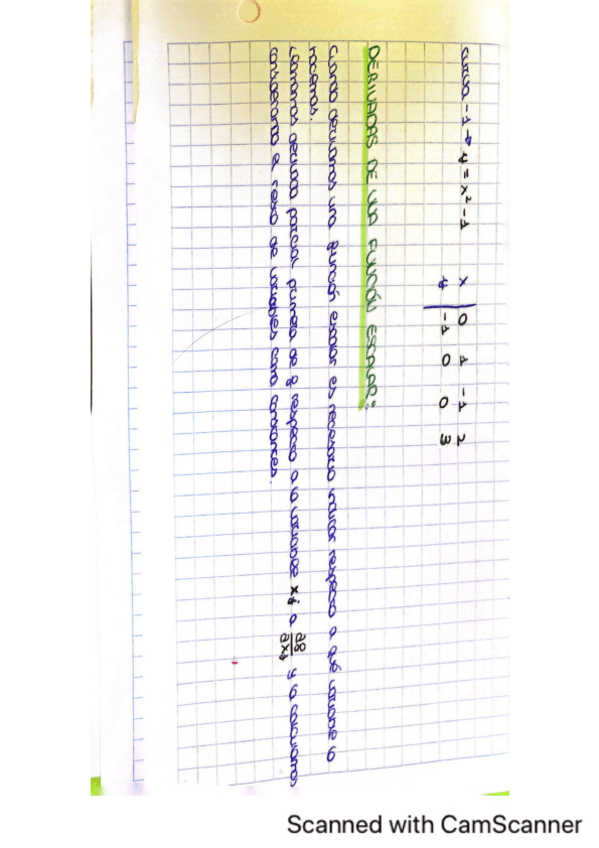 curva -1 → y = x² - 1
x | 0 1 -1 2
y | -1 0 0 3
DERIVADAS DE UNA FUNCIÓN ESCALAR:
Cuando derivamos una función escalar es necesario indicar respecto a qué variable lo
hacemos.
Llamamos derivada parcial primera de f respecto a la variable xj a ∂f/∂xj y la calculamos
considerando el resto de variables como constantes.
Scanned with CamScanner